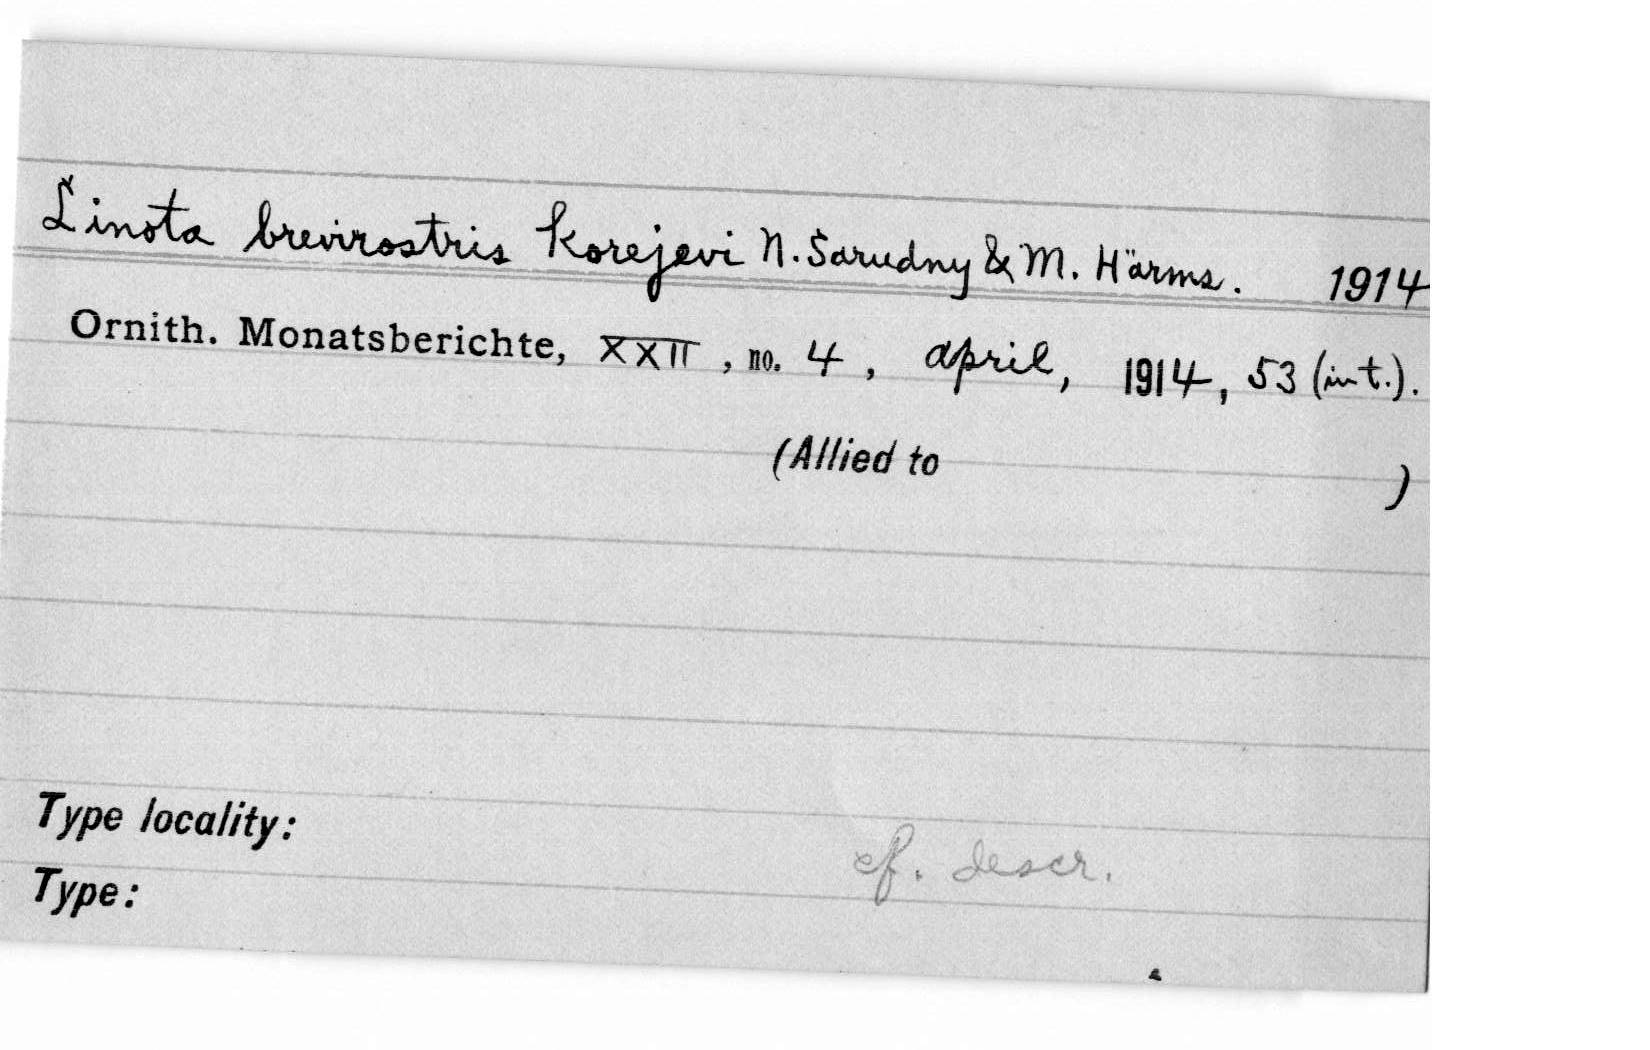 Linota brevirostris korejevi N. Sarudny & M. Härms. 1914
Ornith. Monatsberichte, XXII, no. 4, april, 1914, 53 (int.).
(Allied to )
Type locality:
cf. descr.
Type: